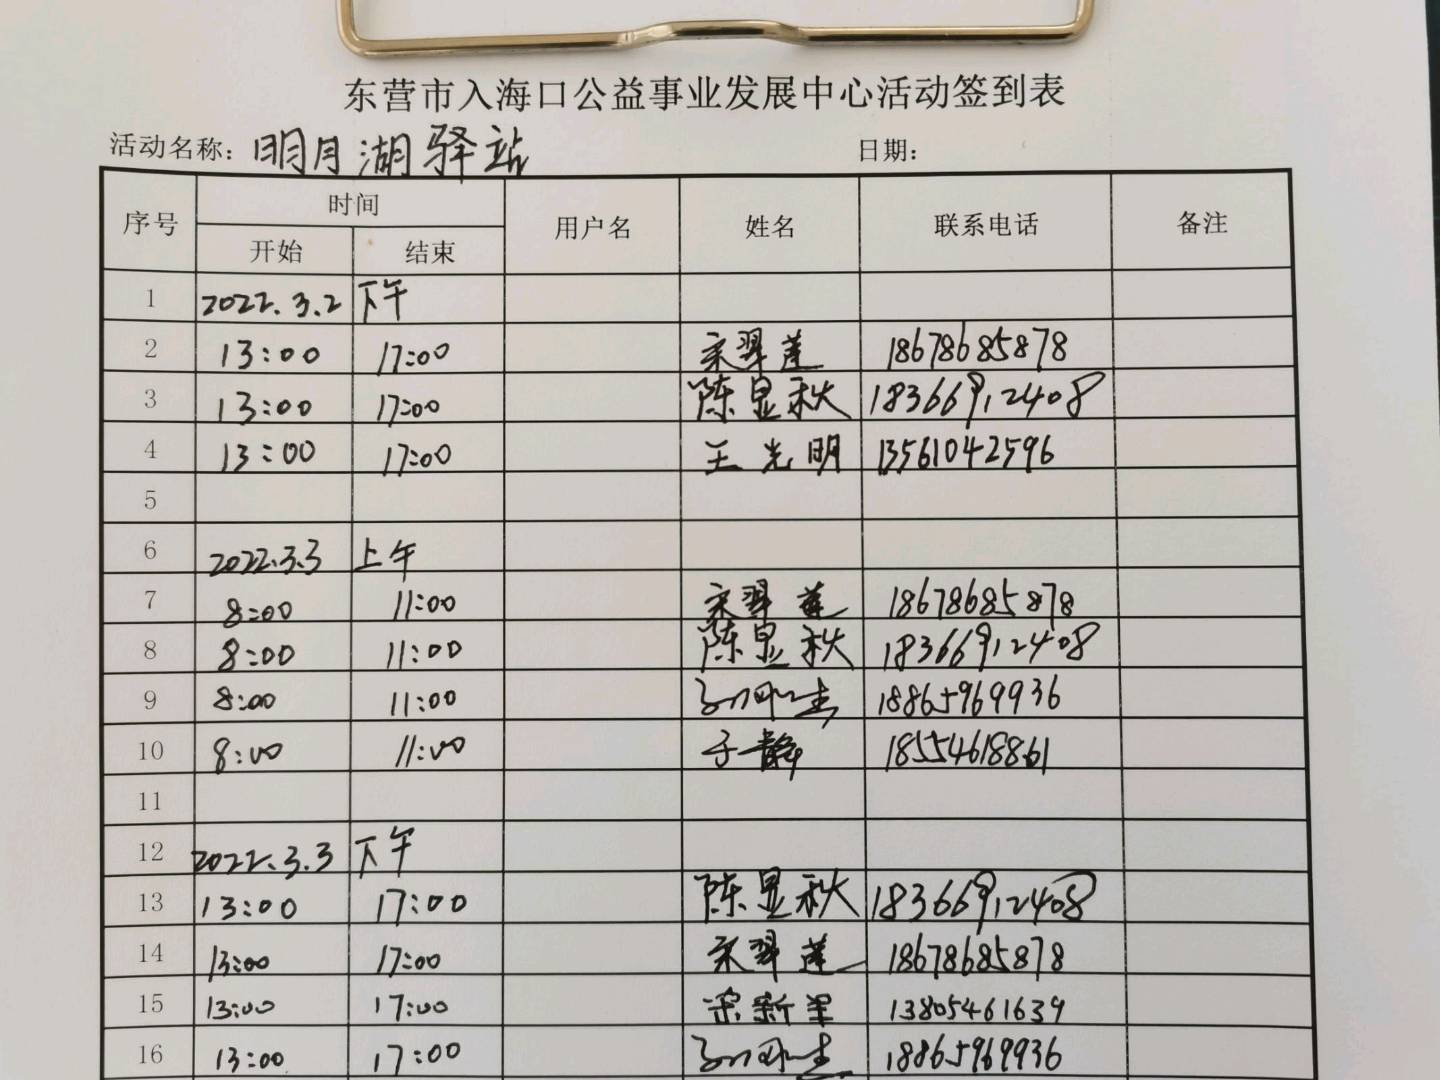 东营市入海口公益事业发展中心活动签到表
活动名称: 明月湖驿站 日期:
序号 时间 用户名 姓名 联系电话 备注
开始 结束
1 2022.3.2 下午
2 13:00 17:00 宋翠莲 18678685878
3 13:00 17:00 陈显秋 18366912408
4 13:00 17:00 王光明 13561042596
5
6 2022.3.3 上午
7 8:00 11:00 宋翠莲 18678685878
8 8:00 11:00 陈显秋 18366912408
9 8:00 11:00 18865969936
10 8:00 11:00 于静 18554618861
11
12 2022.3.3 下午
13 13:00 17:00 陈显秋 18366912408
14 13:00 17:00 宋翠莲 18678685878
15 13:00 17:00 13805461639
16 13:00 17:00 18865969936